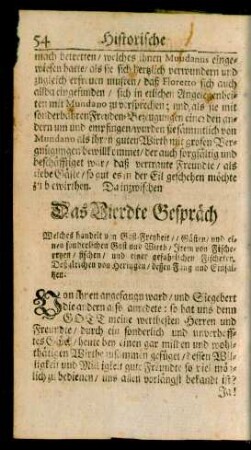 54 Historische
mach betretten / welches ihnen Mundanus einge-
wiesen hatte / als sie sich hertzlich verwundern und
zugleich erfreuen musten / daß Fioretto sich auch
allda eingefunden / sich in etlichen Angelegenhei-
ten mit Mundano zu besprechen; und als sie mit
sonderbahren Freuden-Bezeigungen einer den an-
dern um und empfingen / wurden sie sämmtlich von
Mundano als ihren guten Wirth mit grossen Ver-
gnügungen bewillkommet / der auch sorgfältig und
beschäfftiget war / daß vertraute Freundte / als
liebe Gäste / so gut es in der Eil geschehen möchte
zu bewirthen. Da inzwischen
Das Vierdte Gespräch
Welches handelt von Gast-Freyheit / Gästen / und ei-
nes sonderlichen Gast und Wirth / Item von Fische-
reyen / fischen / und einer gefährlichen Fischerey,
Deßgleichen von Heringen / dessen Fang und Einsal-
tzen.
Von ihnen angefangn ward / und Siegebert
die andern also anredete: so hat uns denn
GOTT meine werthesten Herren und
Freundte / durch ein sonderlich und unverhoff-
tes Glück / heute bey einen gar milten und wohl-
thätigen Wirthe zusammen gefüget / dessen Wil-
ligkeit und Müligkeit gute Freundte so viel mög-
lich zu bedienen / uns allen vorlängst bekandt ist?
Ja!